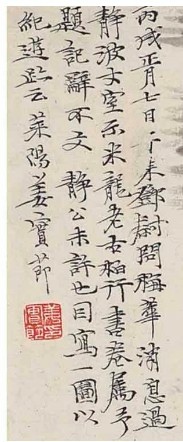 丙戌正月七日下未鄧尉問梅華消息過
靜波丈室示米龍老古柏行書卷屬予
題記辭不文靜公未許也因寫一圖以
紀遊跡云萊陽姜實節